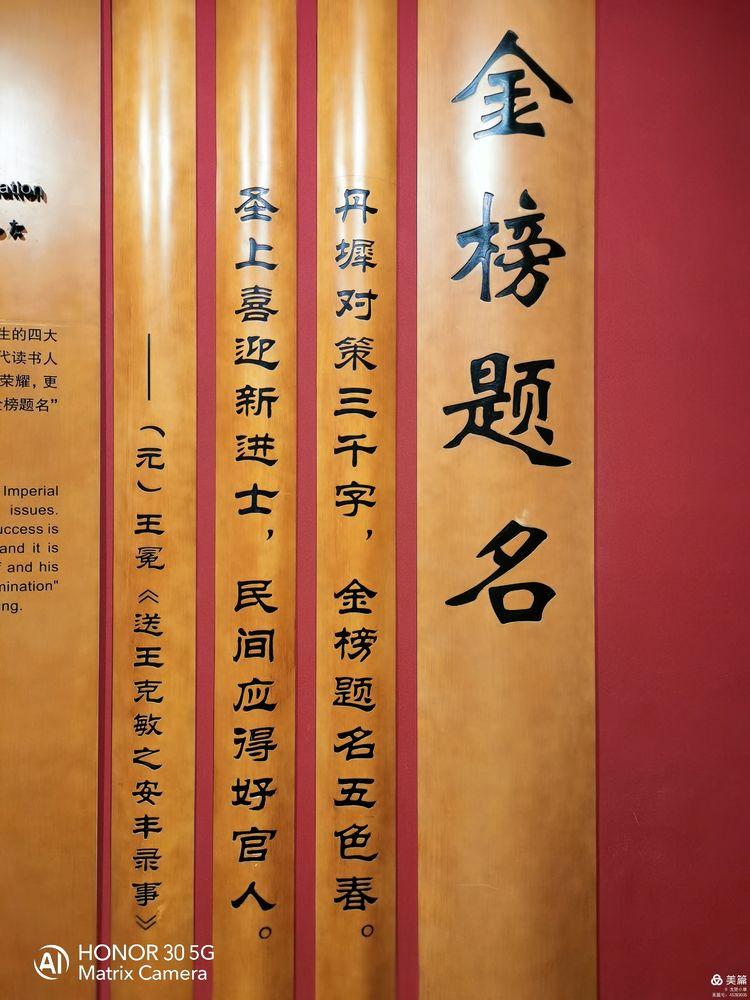 金榜题名
丹墀对策三千字，金榜题名五色春。
圣上喜迎新进士，民间应得好官人。
——（元）王冕《送王克敏之安丰录事》
生的四大
代读书人
荣耀，更
金榜题名”
Imperial
issues.
success is
and it is
and his
ng.
HONOR 30 5G
Matrix Camera
AI
美篇